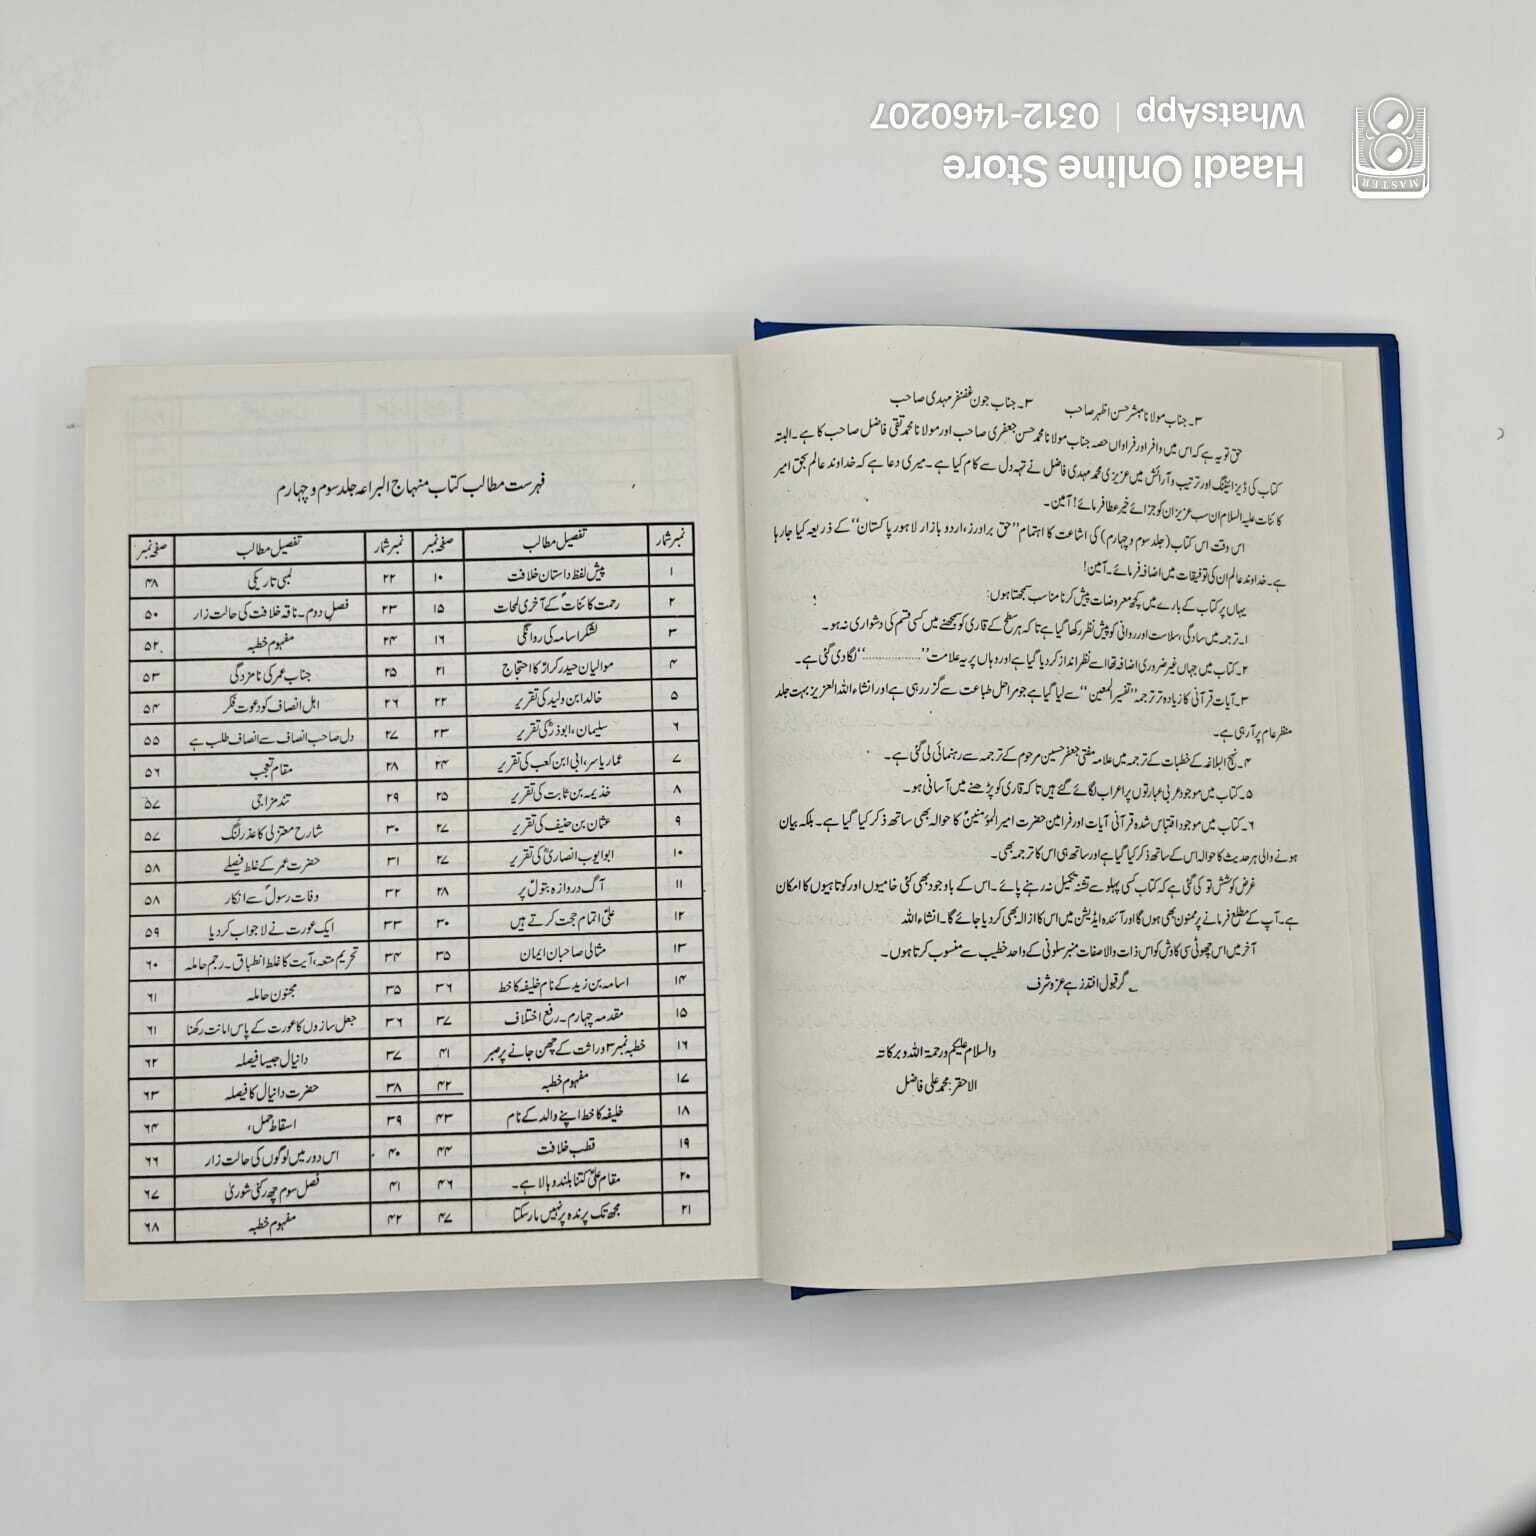 Haadi Online Store
WhatsApp | 0312-1460207
MASTER
۳۔ جناب مولانا مبشر حسن اظہر صاحب ۳۔ جناب جون غضنفر مہدی صاحب
حق تو یہ ہے کہ اس میں وافر اور فراواں حصہ جناب مولانا محمد حسن جعفری صاحب اور مولانا محمد تقی فاضل صاحب کا ہے۔ البتہ
کتاب کی ڈیزائننگ اور ترتیب و آرائش میں عزیزی محمد مہدی فاضل نے تہہ دل سے کام کیا ہے۔ میری دعا ہے کہ خداوند عالم بحق امیر
کائنات علیہ السلام ان سب عزیزان کو جزائے خیر عطا فرمائے! آمین۔
اس وقت اس کتاب (جلد سوم و چہارم) کی اشاعت کا اہتمام "حق برادرز، اردو بازار لاہور پاکستان" کے ذریعہ کیا جا رہا
ہے۔ خداوند عالم ان کی توفیقات میں اضافہ فرمائے۔ آمین!
یہاں پر کتاب کے بارے میں کچھ معروضات پیش کرنا مناسب سمجھتا ہوں:
۱۔ ترجمہ میں سادگی، سلاست اور روانی کو پیش نظر رکھا گیا ہے تاکہ ہر سطح کے قاری کو سمجھنے میں کسی قسم کی دشواری نہ ہو۔
۲۔ کتاب میں جہاں غیر ضروری اضافہ تھا اسے نظر انداز کر دیا گیا ہے اور وہاں پر یہ علامت "................" لگا دی گئی ہے۔
۳۔ آیات قرآنی کا زیادہ تر ترجمہ "تفسیر المعین" سے لیا گیا ہے جو مراحل طباعت سے گزر رہی ہے اور انشاء اللہ العزیز بہت جلد
منظر عام پر آ رہی ہے۔
۴۔ نہج البلاغہ کے خطبات کے ترجمہ میں علامہ مفتی جعفر حسین مرحوم کے ترجمہ سے رہنمائی لی گئی ہے۔
۵۔ کتاب میں موجود عربی عبارتوں پر اعراب لگائے گئے ہیں تاکہ قاری کو پڑھنے میں آسانی ہو۔
۶۔ کتاب میں موجود اقتباس شدہ قرآنی آیات اور فرامین حضرت امیر المؤمنینؑ کا حوالہ بھی ساتھ ذکر کیا گیا ہے۔ بلکہ بیان
ہونے والی ہر حدیث کا حوالہ اس کے ساتھ ذکر کیا گیا ہے اور ساتھ ہی اس کا ترجمہ بھی۔
غرض کوشش تو کی گئی ہے کہ کتاب کسی پہلو سے تشنہ تکمیل نہ رہنے پائے۔ اس کے باوجود بھی کئی خامیوں اور کوتاہیوں کا امکان
ہے۔ آپ کے مطلع فرمانے پر ممنون بھی ہوں گا اور آئندہ ایڈیشن میں اس کا ازالہ بھی کر دیا جائے گا۔ انشاء اللہ
آخر میں اس چھوٹی سی کاوش کو اس ذات والا صفات منبر سلونی کے واحد خطیب سے منسوب کرتا ہوں۔
گر قبول افتد زہے عز و شرف
والسلام علیکم ورحمۃ اللہ وبرکاتہ
الاحقر: محمد علی فاضل
فہرست مطالب کتاب منہاج البراعہ جلد سوم و چہارم
نمبر شمار تفصیل مطالب صفحہ نمبر نمبر شمار تفصیل مطالب صفحہ نمبر
۱ پیش لفظ داستان خلافت ۱۰ ۲۲ لمبی تاریکی ۴۸
۲ رحمت کائناتؐ کے آخری لمحات ۱۵ ۲۳ فصل دوم۔ ناقہ خلافت کی حالت زار ۵۰
۳ لشکر اسامہ کی روانگی ۱۶ ۲۴ مفہوم خطبہ ۵۲
۴ موالیان حیدر کرارؑ کا احتجاج ۲۱ ۲۵ جناب عمر کی نامزدگی ۵۳
۵ خالد ابن ولید کی تقریر ۲۲ ۲۶ اہل انصاف کو دعوت فکر ۵۴
۶ سلیمان، ابوذرؓ کی تقریر ۲۳ ۲۷ دل صاحب انصاف سے انصاف طلب ہے ۵۵
۷ عمار یاسر، ابی ابن کعب کی تقریر ۲۴ ۲۸ مقام تعجب ۵۶
۸ خذیمہ بن ثابت کی تقریر ۲۵ ۲۹ تند مزاجی ۵۷
۹ عثمان بن حنیف کی تقریر ۲۷ ۳۰ شارح معتزلی کا عذر لنگ ۵۷
۱۰ ابو ایوب انصاریؓ کی تقریر ۲۷ ۳۱ حضرت عمر کے غلط فیصلے ۵۸
۱۱ آگ دروازہ بتولؑ پر ۲۸ ۳۲ وفات رسولؐ سے انکار ۵۸
۱۲ علیؑ اتمام حجت کرتے ہیں ۳۰ ۳۳ ایک عورت نے لاجواب کر دیا ۵۹
۱۳ مثالی صاحبان ایمان ۳۵ ۳۴ تحریم متعہ، آیت کا غلط انطباق۔ رجم حاملہ ۶۰
۱۴ اسامہ بن زید کے نام خلیفہ کا خط ۳۶ ۳۵ مجنون حاملہ ۶۱
۱۵ مقدمہ چہارم۔ رفع اختلاف ۳۷ ۳۶ جعل سازوں کا عورت کے پاس امانت رکھنا ۶۱
۱۶ خطبہ نمبر ۳ وراثت کے چھن جانے پر صبر ۴۱ ۳۷ دانیال جیسا فیصلہ ۶۲
۱۷ مفہوم خطبہ ۴۲ ۳۸ حضرت دانیال کا فیصلہ ۶۳
۱۸ خلیفہ کا خط اپنے والد کے نام ۴۳ ۳۹ اسقاط حمل، ۶۴
۱۹ قطب خلافت ۴۴ ۴۰ اس دور میں لوگوں کی حالت زار ۶۶
۲۰ مقام علیؑ کتنا بلند و بالا ہے۔ ۴۶ ۴۱ فصل سوم چھ رکنی شوریٰ ۶۷
۲۱ مجھ تک پرندہ پر نہیں مار سکتا ۴۷ ۴۲ مفہوم خطبہ ۶۸